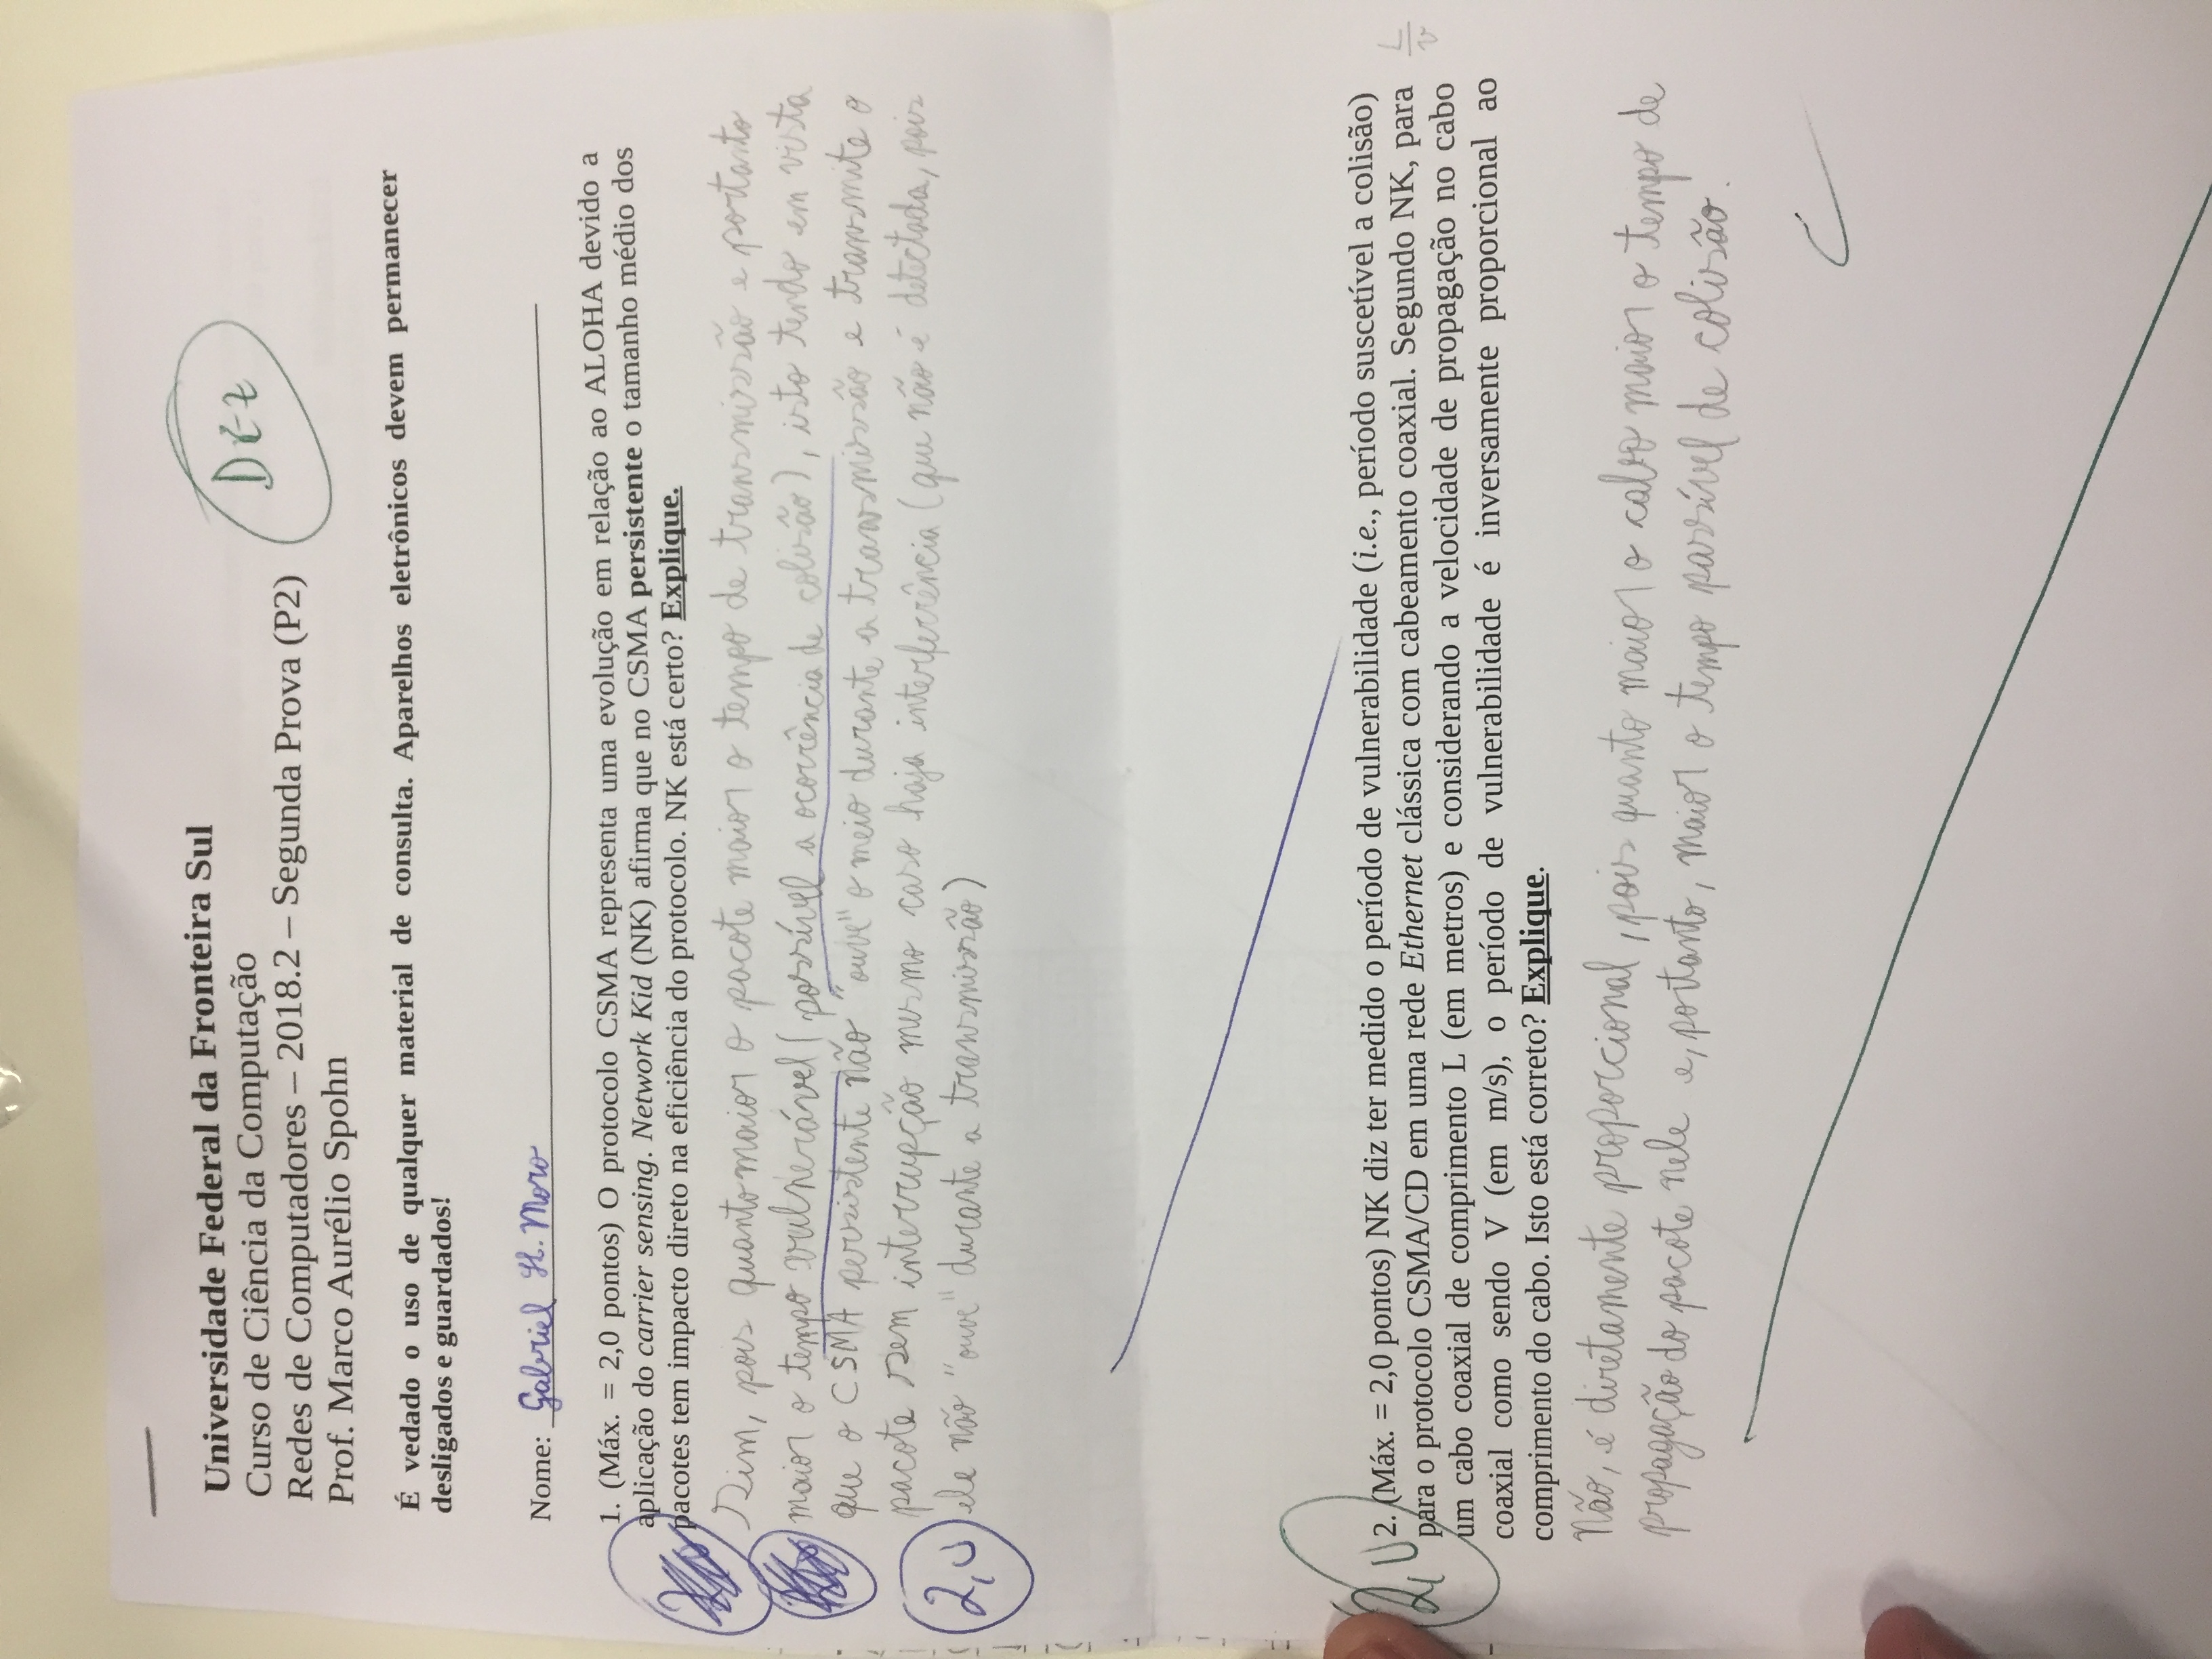 Universidade Federal da Fronteira Sul
Curso de Ciência da Computação
Redes de Computadores – 2018.2 – Segunda Prova (P2)
Prof. Marco Aurélio Spohn
DEZ
É vedado o uso de qualquer material de consulta. Aparelhos eletrônicos devem permanecer
desligados e guardados!
Nome: Gabriel H. Moro
1. (Máx. = 2,0 pontos) O protocolo CSMA representa uma evolução em relação ao ALOHA devido a
aplicação do carrier sensing. Network Kid (NK) afirma que no CSMA persistente o tamanho médio dos
pacotes tem impacto direto na eficiência do protocolo. NK está certo? Explique.
Sim, pois quanto maior o pacote maior o tempo de transmissão e portanto
maior o tempo vulnerável (possível a ocorrência de colisão), isto tendo em vista
que o CSMA persistente não "ouve" o meio durante a transmissão e transmite o
pacote sem interrupção mesmo caso haja interferrência (que não é detectada, pois
2,0
ele não "ouve" durante a transmissão)
2,0
2. (Máx. = 2,0 pontos) NK diz ter medido o período de vulnerabilidade (i.e., período suscetível a colisão)
para o protocolo CSMA/CD em uma rede Ethernet clássica com cabeamento coaxial. Segundo NK, para
um cabo coaxial de comprimento L (em metros) e considerando a velocidade de propagação no cabo
coaxial como sendo V (em m/s), o período de vulnerabilidade é inversamente proporcional ao
comprimento do cabo. Isto está correto? Explique.
L
v
Não, é diretamente proporcional, pois quanto maior o cabo maior o tempo de
propagação do pacote nele e, portanto, maior o tempo passível de colisão.